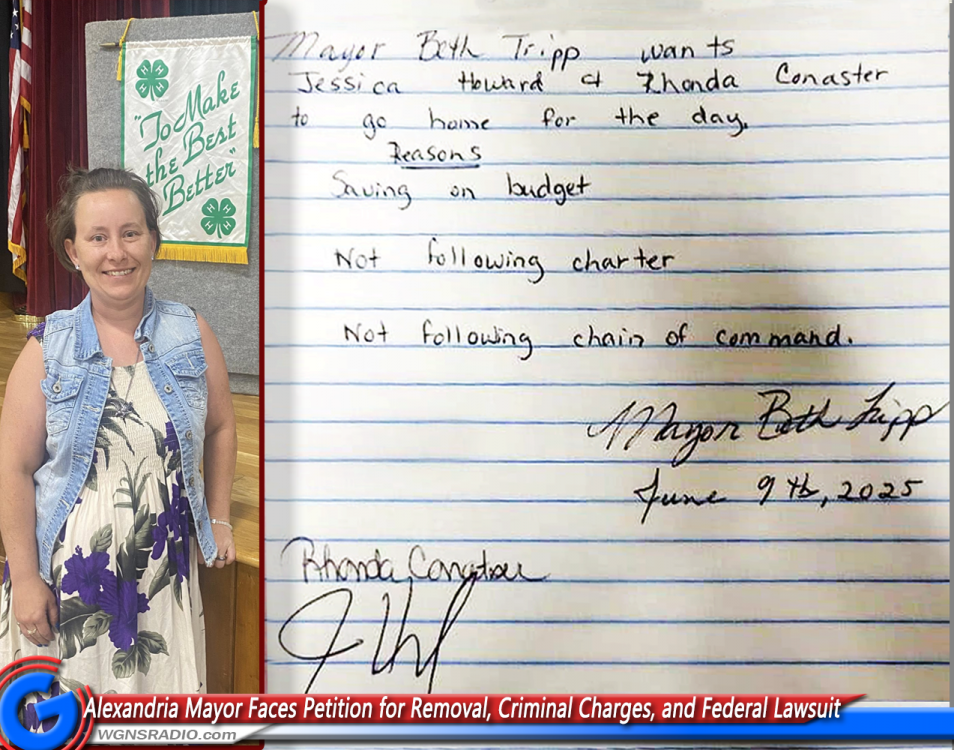 H H H H
"To Make
the Best
Better"
H H H H
Mayor Beth Tripp wants
Jessica Howard & Rhonda Conaster
to go home for the day.
Reasons
Saving on budget
Not following charter
Not following chain of command.
Mayor Beth Tripp
June 9th, 2025
Rhonda
G
Alexandria Mayor Faces Petition for Removal, Criminal Charges, and Federal Lawsuit
WGNSRADIO.com